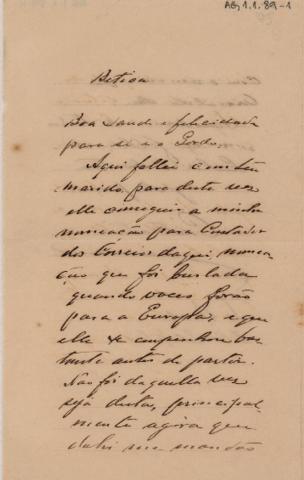 AG, 1.1.89-1
Betioa
Boa Saude e felicidade
para si e o Pordo.
Aqui fallei com teu
marido para desta vez
elle conseguir a minha
nomeação para Contador
dos Correios daqui, nomea
ção que foi burlada
quando voces forão
para a Europa, e que
elle se empenhou bas
tante antes de partir.
Não foi daquella vez
seja desta, principal
mente agora que
dahi me mandão